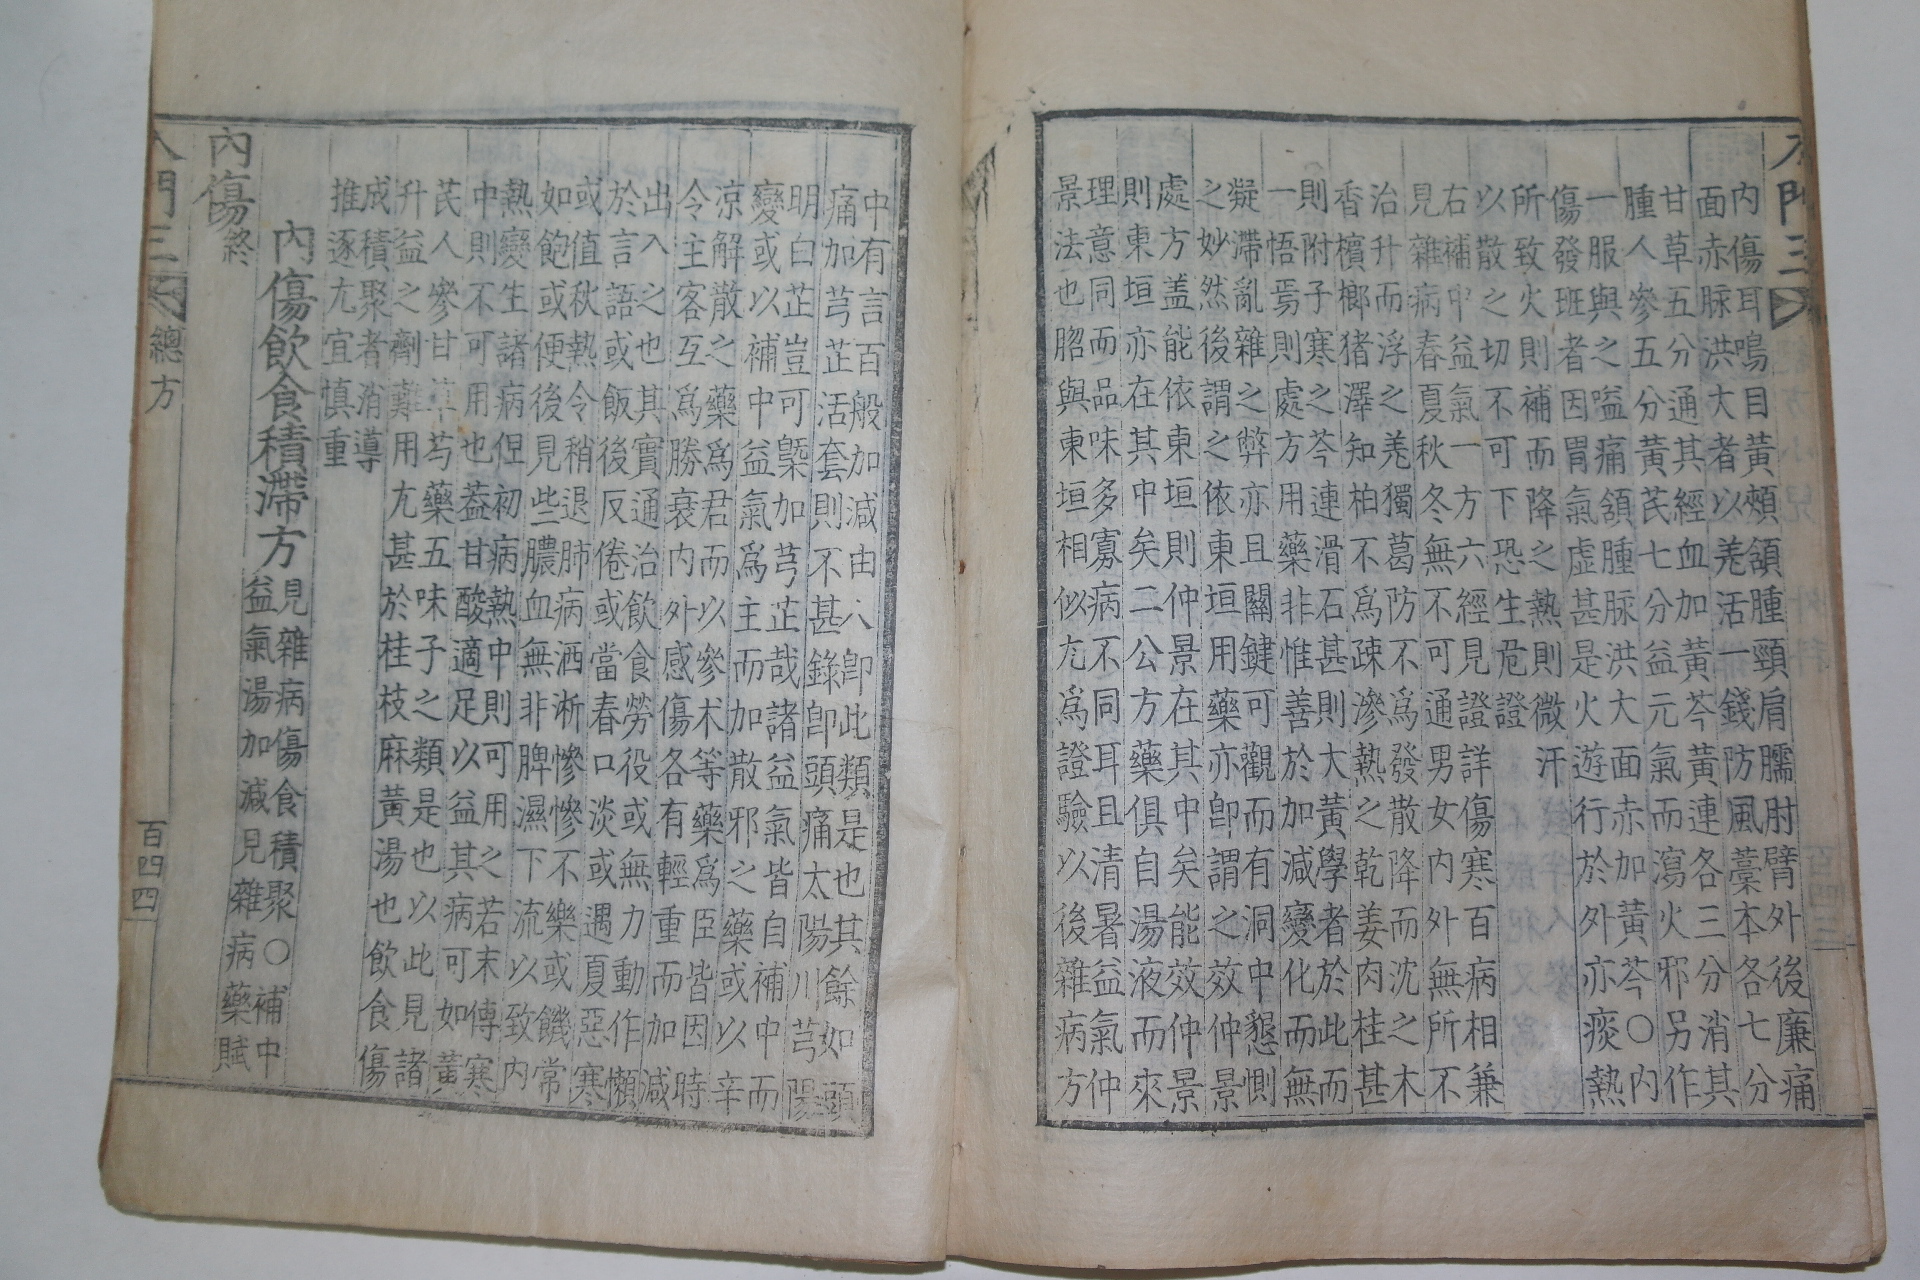 入門三
內傷耳鳴目黃頰頷腫頸肩臑肘臂外後廉痛
面赤脉洪大者以羌活一錢防風藁本各七分
甘草五分通其經血加黃芩黃連各三分消其
腫人參五分黃芪七分益元氣而瀉火邪另作
一服與之嗌痛頷腫脉洪大面赤加黃芩○內
傷發班者因胃氣虛甚是火遊行於外亦痰熱
所致火則補而降之熱則微汗
以散之切不可下恐生危證
右補中益氣一方六經見證詳傷寒百病相兼
見雜病春夏秋冬無不可通男女內外無所不
治升而浮之羌獨葛防不爲發散降而沈之木
香檳榔猪澤知柏不爲疎滲熱之乾姜肉桂甚
則附子寒之芩連滑石甚則大黃學者於此而
一悟焉則處方用藥非惟善於加減變化而無
凝滯亂雜之弊亦且關鍵可觀而有洞中懇惻
之妙然後謂之依東垣用藥亦卽謂之效仲景
處方盖能依東垣則仲景在其中矣能效仲景
則東垣亦在其中矣二公方藥俱自湯液而來
理意同而品味多寡病不同耳且清暑益氣仲
景法也與東垣相似尤爲證驗以後雜病方
中有言百般加減由人卽此類是也其餘如頭
痛加芎芷活套則不甚錄卽頭痛太陽川芎陽
明白芷豈可槩加芎芷哉諸益氣皆自補中而
變或以補中益氣爲主而加散邪之藥或以辛
凉解散之藥爲君而以參术等藥爲臣皆因時
令主客互爲勝衰內外感傷各有輕重而加減
出入之也其實通治飲食勞役或無力動作懶
於言語或飯後反倦或當春口淡或遇夏惡寒
或值秋熱令稍退肺病洒淅慘慘不樂或饑常
如飽或便後見些膿血無非脾濕下流以致內
熱變生諸病但初病熱中則可用之若末傳寒
中則不可用也盖甘酸適足以益其病可如黃
芪人參甘草芍藥五味子之類是也以此見諸
升益之劑難用尤甚於桂枝麻黃湯也飲食傷
成積聚者消導
推逐尤宜慎重
內傷飲食積滯方見雜病傷食積聚○補中
益氣湯加減見雜病藥賦
內傷終
入門三 總方 百四四